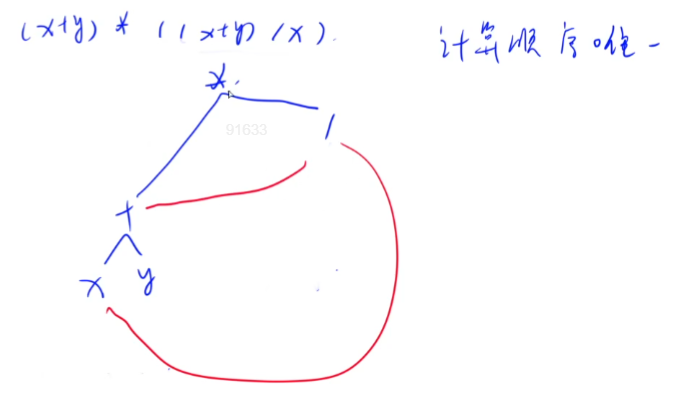 (x+y) * ((x+y)/x).
计算顺序唯一
*
91633
/
+
x y